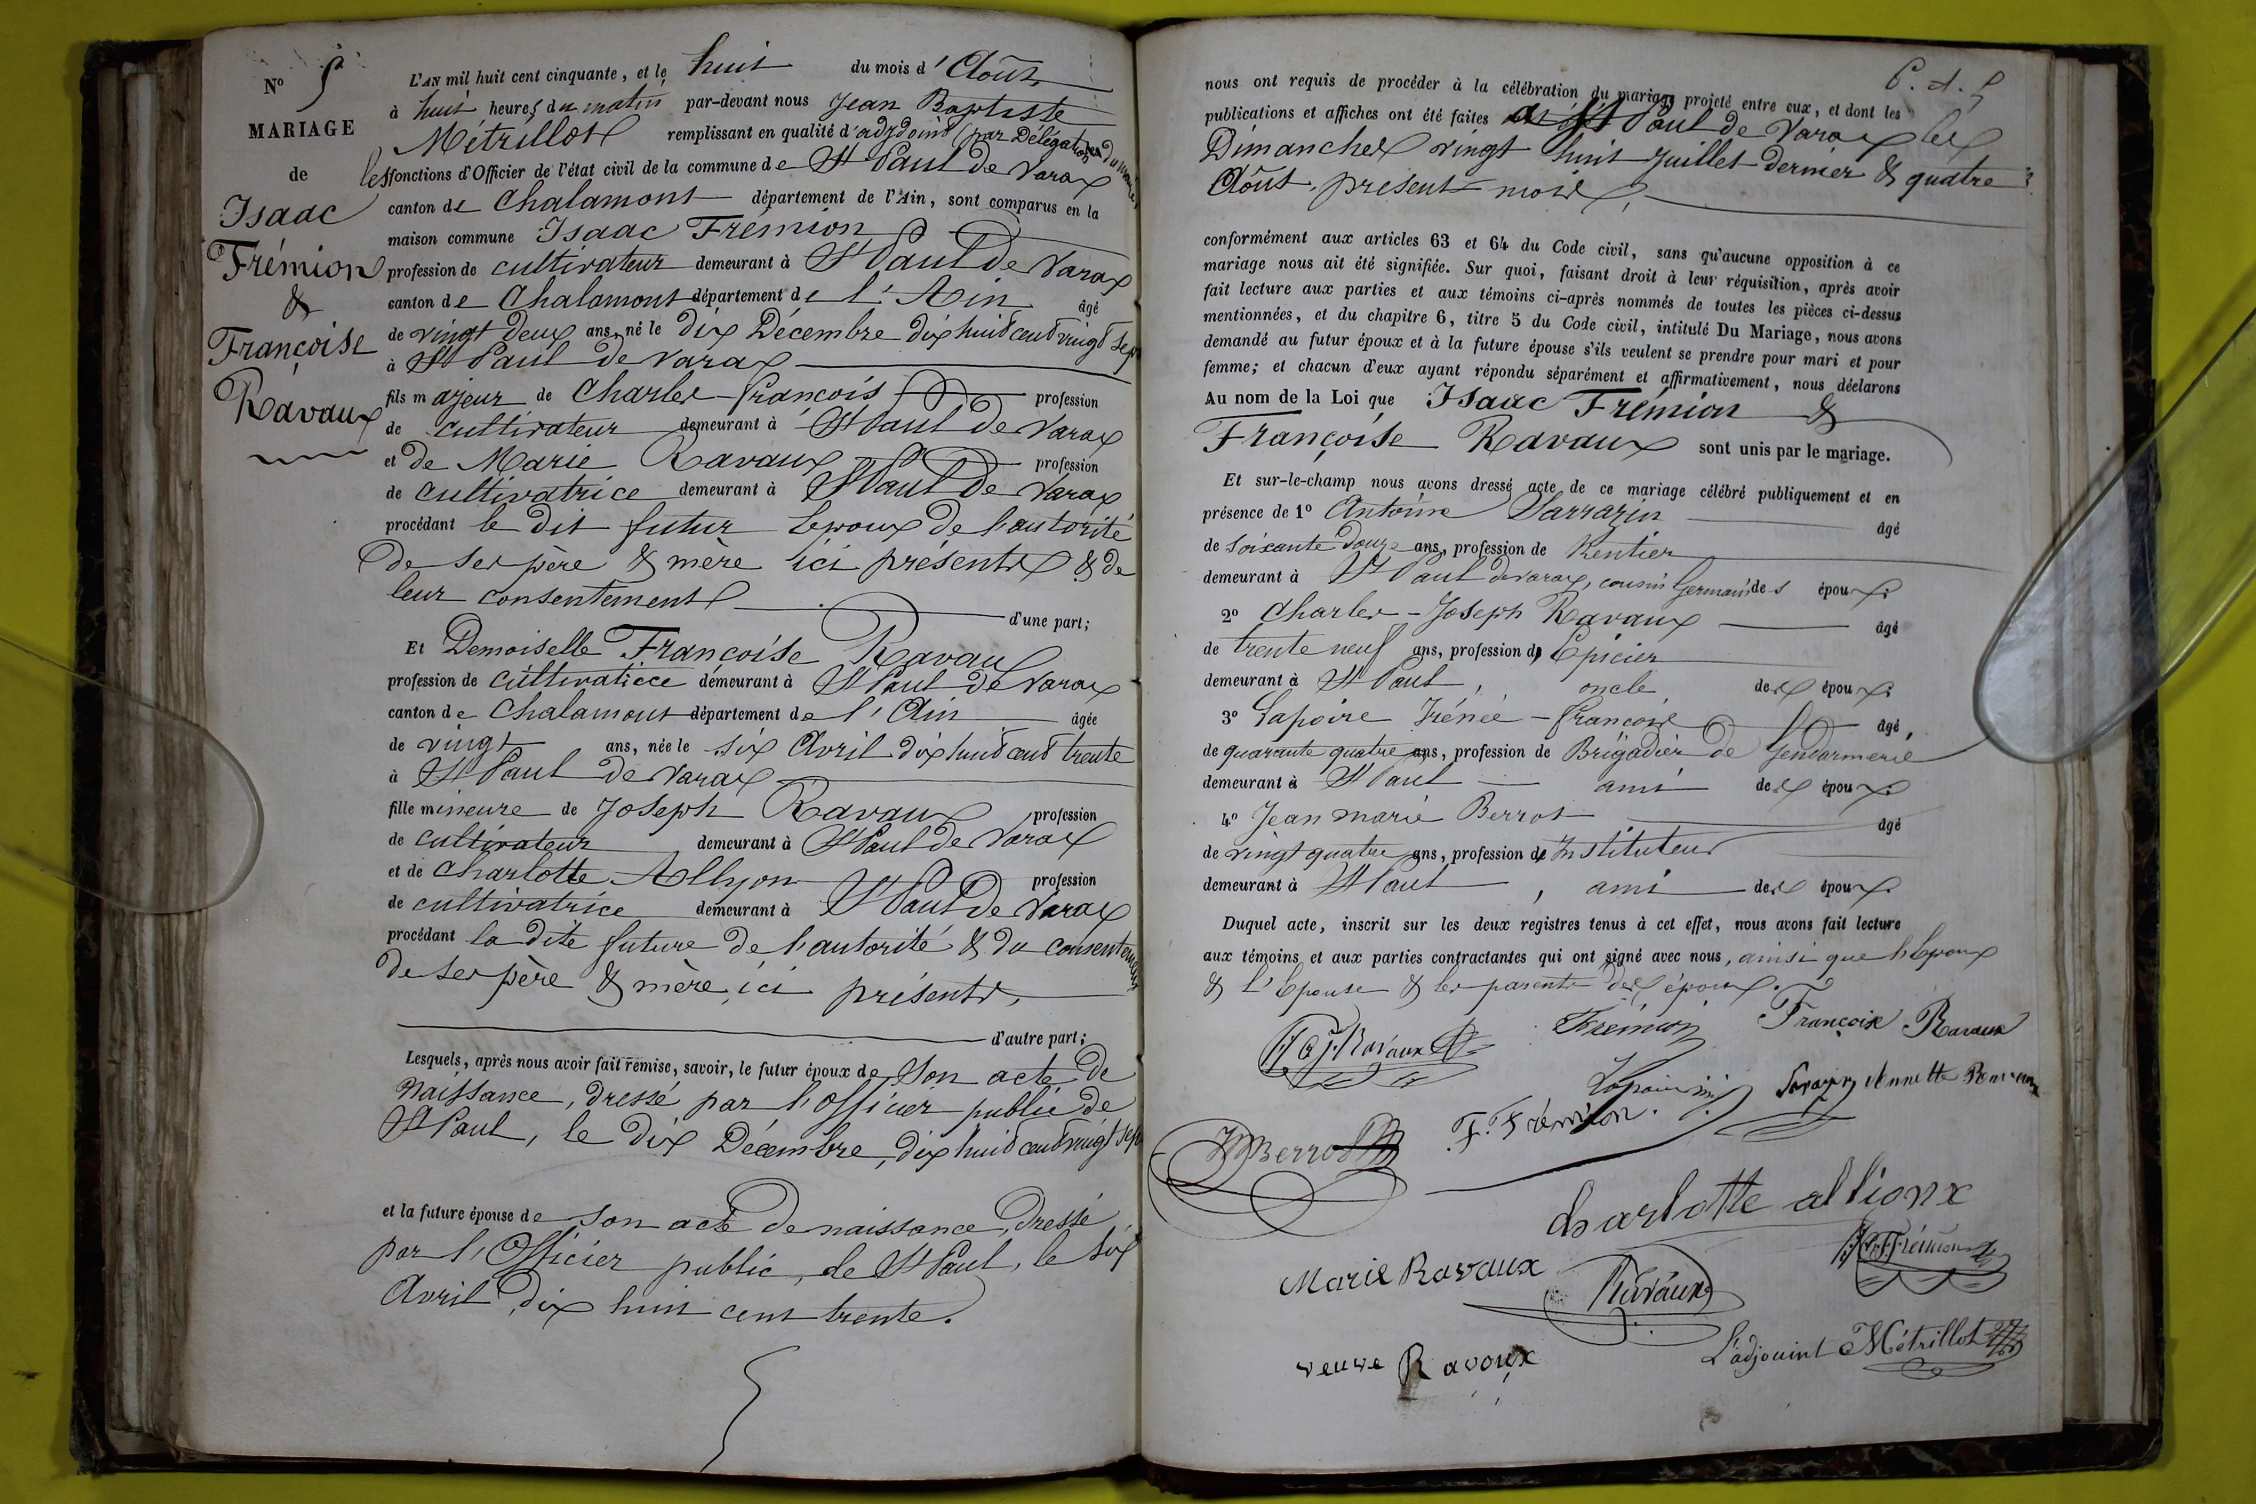 N° 5
MARIAGE
de
Isaac
Frémion
&
Françoise
Ravaux
L'AN mil huit cent cinquante, et le huit du mois d'Août
à huit heures du matin par-devant nous Jean Baptiste
Métrillot remplissant en qualité d'adjoint (par Délégation du maire)
les fonctions d'Officier de l'état civil de la commune de St Paul de Varax
canton de Chalamont département de l'Ain, sont comparus en la
maison commune Isaac Frémion
profession de cultivateur demeurant à St Paul De Varax
canton de Chalamont département de l'Ain âgé
de vingt deux ans, né le dix Décembre dix huit cent vingt sept
à St Paul de Varax
fils majeur de Charles-françois profession
de cultivateur demeurant à St Paul De Varax
et de Marie Ravaux profession
de cultivatrice demeurant à St Paul De Varax
procédant le dit futur Epoux de l'autorité
De ses père & mère ici présents & de
leur consentement
d'une part;
Et Demoiselle Françoise Ravaux
profession de cultivatrice demeurant à St Paul de Varax
canton de Chalamont département de l'Ain âgée
de vingt ans, née le six Avril dix huit cent trente
à St Paul de Varax
fille mineure de Joseph Ravaux profession
de cultivateur demeurant à St Paul de Varax
et de Charlotte Allyon profession
de cultivatrice demeurant à St Paul De Varax
procédant la dite future de l'autorité & du consentement
de ses père & mère, ici présents,
d'autre part;
Lesquels, après nous avoir fait remise, savoir, le futur époux de Son acte De
naissance, dressé par l'officier public de
St Paul, le Dix Décembre, dix huit cent vingt sept
et la future épouse de son acte De naissance, dressé
par l'Officier public, de St Paul, le six
Avril dix huit cent trente.
nous ont requis de procéder à la célébration du mariage projeté entre eux, et dont les
publications et affiches ont été faites à St Paul de Varax les
Dimanches vingt huit Juillet dernier & quatre
Août, présent mois,
conformément aux articles 63 et 64 du Code civil, sans qu'aucune opposition à ce
mariage nous ait été signifiée. Sur quoi, faisant droit à leur réquisition, après avoir
fait lecture aux parties et aux témoins ci-après nommés de toutes les pièces ci-dessus
mentionnées, et du chapitre 6, titre 5 du Code civil, intitulé Du Mariage, nous avons
demandé au futur époux et à la future épouse s'ils veulent se prendre pour mari et pour
femme; et chacun d'eux ayant répondu séparément et affirmativement, nous déclarons
Au nom de la Loi que Isaac Frémion &
Françoise Ravaux sont unis par le mariage.
Et sur-le-champ nous avons dressé acte de ce mariage célébré publiquement et en
présence de 1° Antoine Sarrazin âgé
de soixante douze ans, profession de Rentier
demeurant à St Paul de Varax, cousin Germain des époux.
2° Charles-Joseph Ravaux âgé
de trente neuf ans, profession d'Epicier
demeurant à St Paul, oncle des époux.
3° Lapoire Irénée-françois âgé,
de quarante quatre ans, profession de Brigadier de Gendarmerie
demeurant à St Paul ami des époux.
4° Jean marie Berrot âgé
de vingt quatre ans, profession d'Instituteur
demeurant à St Paul, ami des époux.
Duquel acte, inscrit sur les deux registres tenus à cet effet, nous avons fait lecture
aux témoins et aux parties contractantes qui ont signé avec nous, ainsi que l'Epoux
& l'Epouse & les parents des époux.
Ravaux Frémion Françoise Ravaux
Annette Ravaux
F. Frémion.
Berrot
Charlotte allionx
Frémion
Marie Ravaux
Ravaux
veuve Ravoux
L'adjouint Métrillot